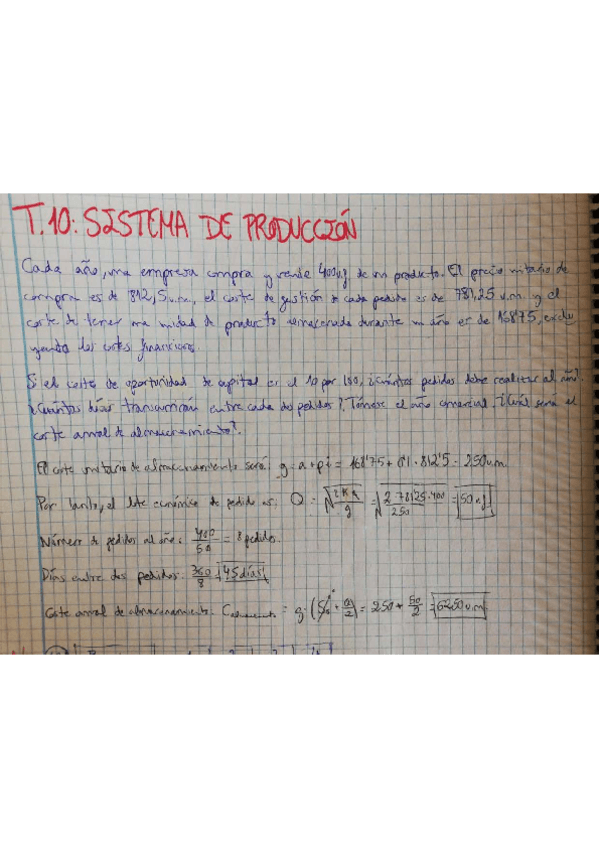 T.10: SISTEMA DE PRODUCCIÓN
Cada año, una empresa compra y vende 400 u.f. de un producto. El precio unitario de
compra es de 812,5 u.m., el coste de gestión de cada pedido es de 781,25 u.m. y el
coste de tener una unidad de producto almacenada durante un año es de 168'75, exclu
yendo los costes financieros.
Si el coste de oportunidad de capital es el 10 por 100, ¿Cuántos pedidos debe realizar al año?
¿Cuántos días transcurrirán entre cada dos pedidos? Tómese el año comercial. ¿Cuál será el
coste anual de almacenamiento?
El coste unitario de almacenamiento será: g = a + p i = 168'75 + 0'1 · 812'5 = 250 u.m.
Por tanto, el lote económico de pedido es: Q = √(2 K q / g) = √(2 · 781'25 · 400 / 250) = 50 u.f.
Número de pedidos al año: 400/50 = 8 pedidos.
Días entre dos pedidos: 360/8 = 45 días
Coste anual de almacenamiento. C = g · ( + Q/2) = 250 * 50/2 = 6250 u.m.